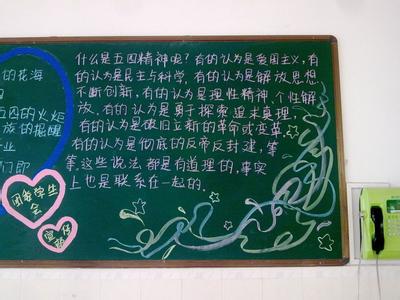 什么是五四精神呢?有的认为是爱国主义,有
的认为是民主与科学,有的认为是解放思想
不断创新,有的认为是理性精神、个性解
放、有的认为是勇于探索、追求真理,
有的认为是破旧立新的革命或变革,
有的认为是彻底的反帝反封建,等
等。这些说法,都是有道理的,事实
上也是联系在一起的。
的花海
五四的火炬
族的提醒
业
门即
团委学生
会
宣